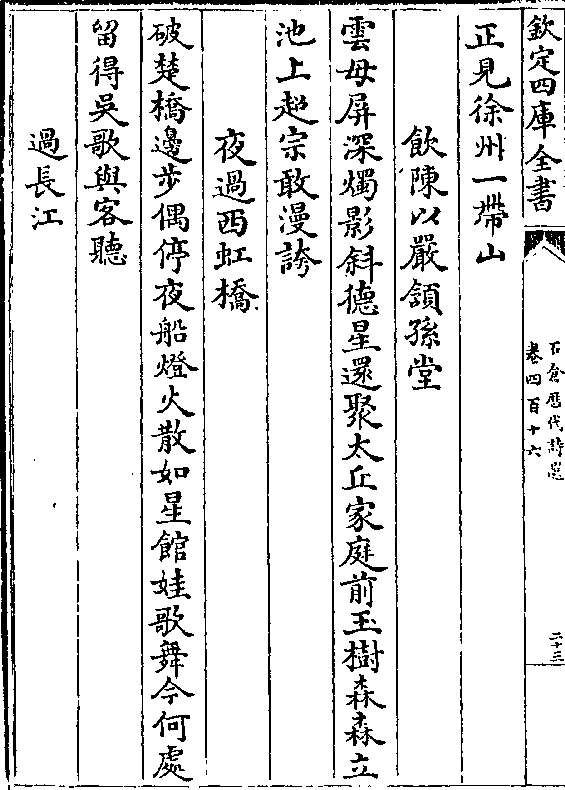 欽定四庫全書
石倉歷代詩選
卷四百十六
二十三
正見徐州一帶山
飲陳以嚴頷孫堂
雲母屏深燭影斜德星還聚太丘家庭前玉樹森森立
池上超宗敢漫誇
夜過西虹橋
破楚橋邊步偶停夜船燈火散如星館娃歌舞今何處
留得吳歌與客聽
過長江